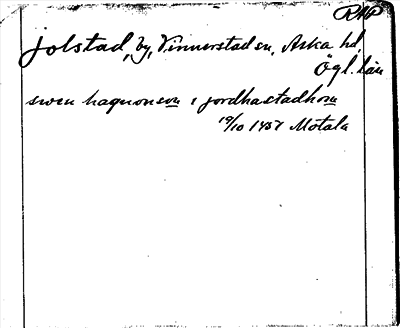 RAP
Jolstad, by, Vinnerstad sn, Aska hd,
Ögl. län
swen haquonson i jordhastadhom
19/10 1437 Motala